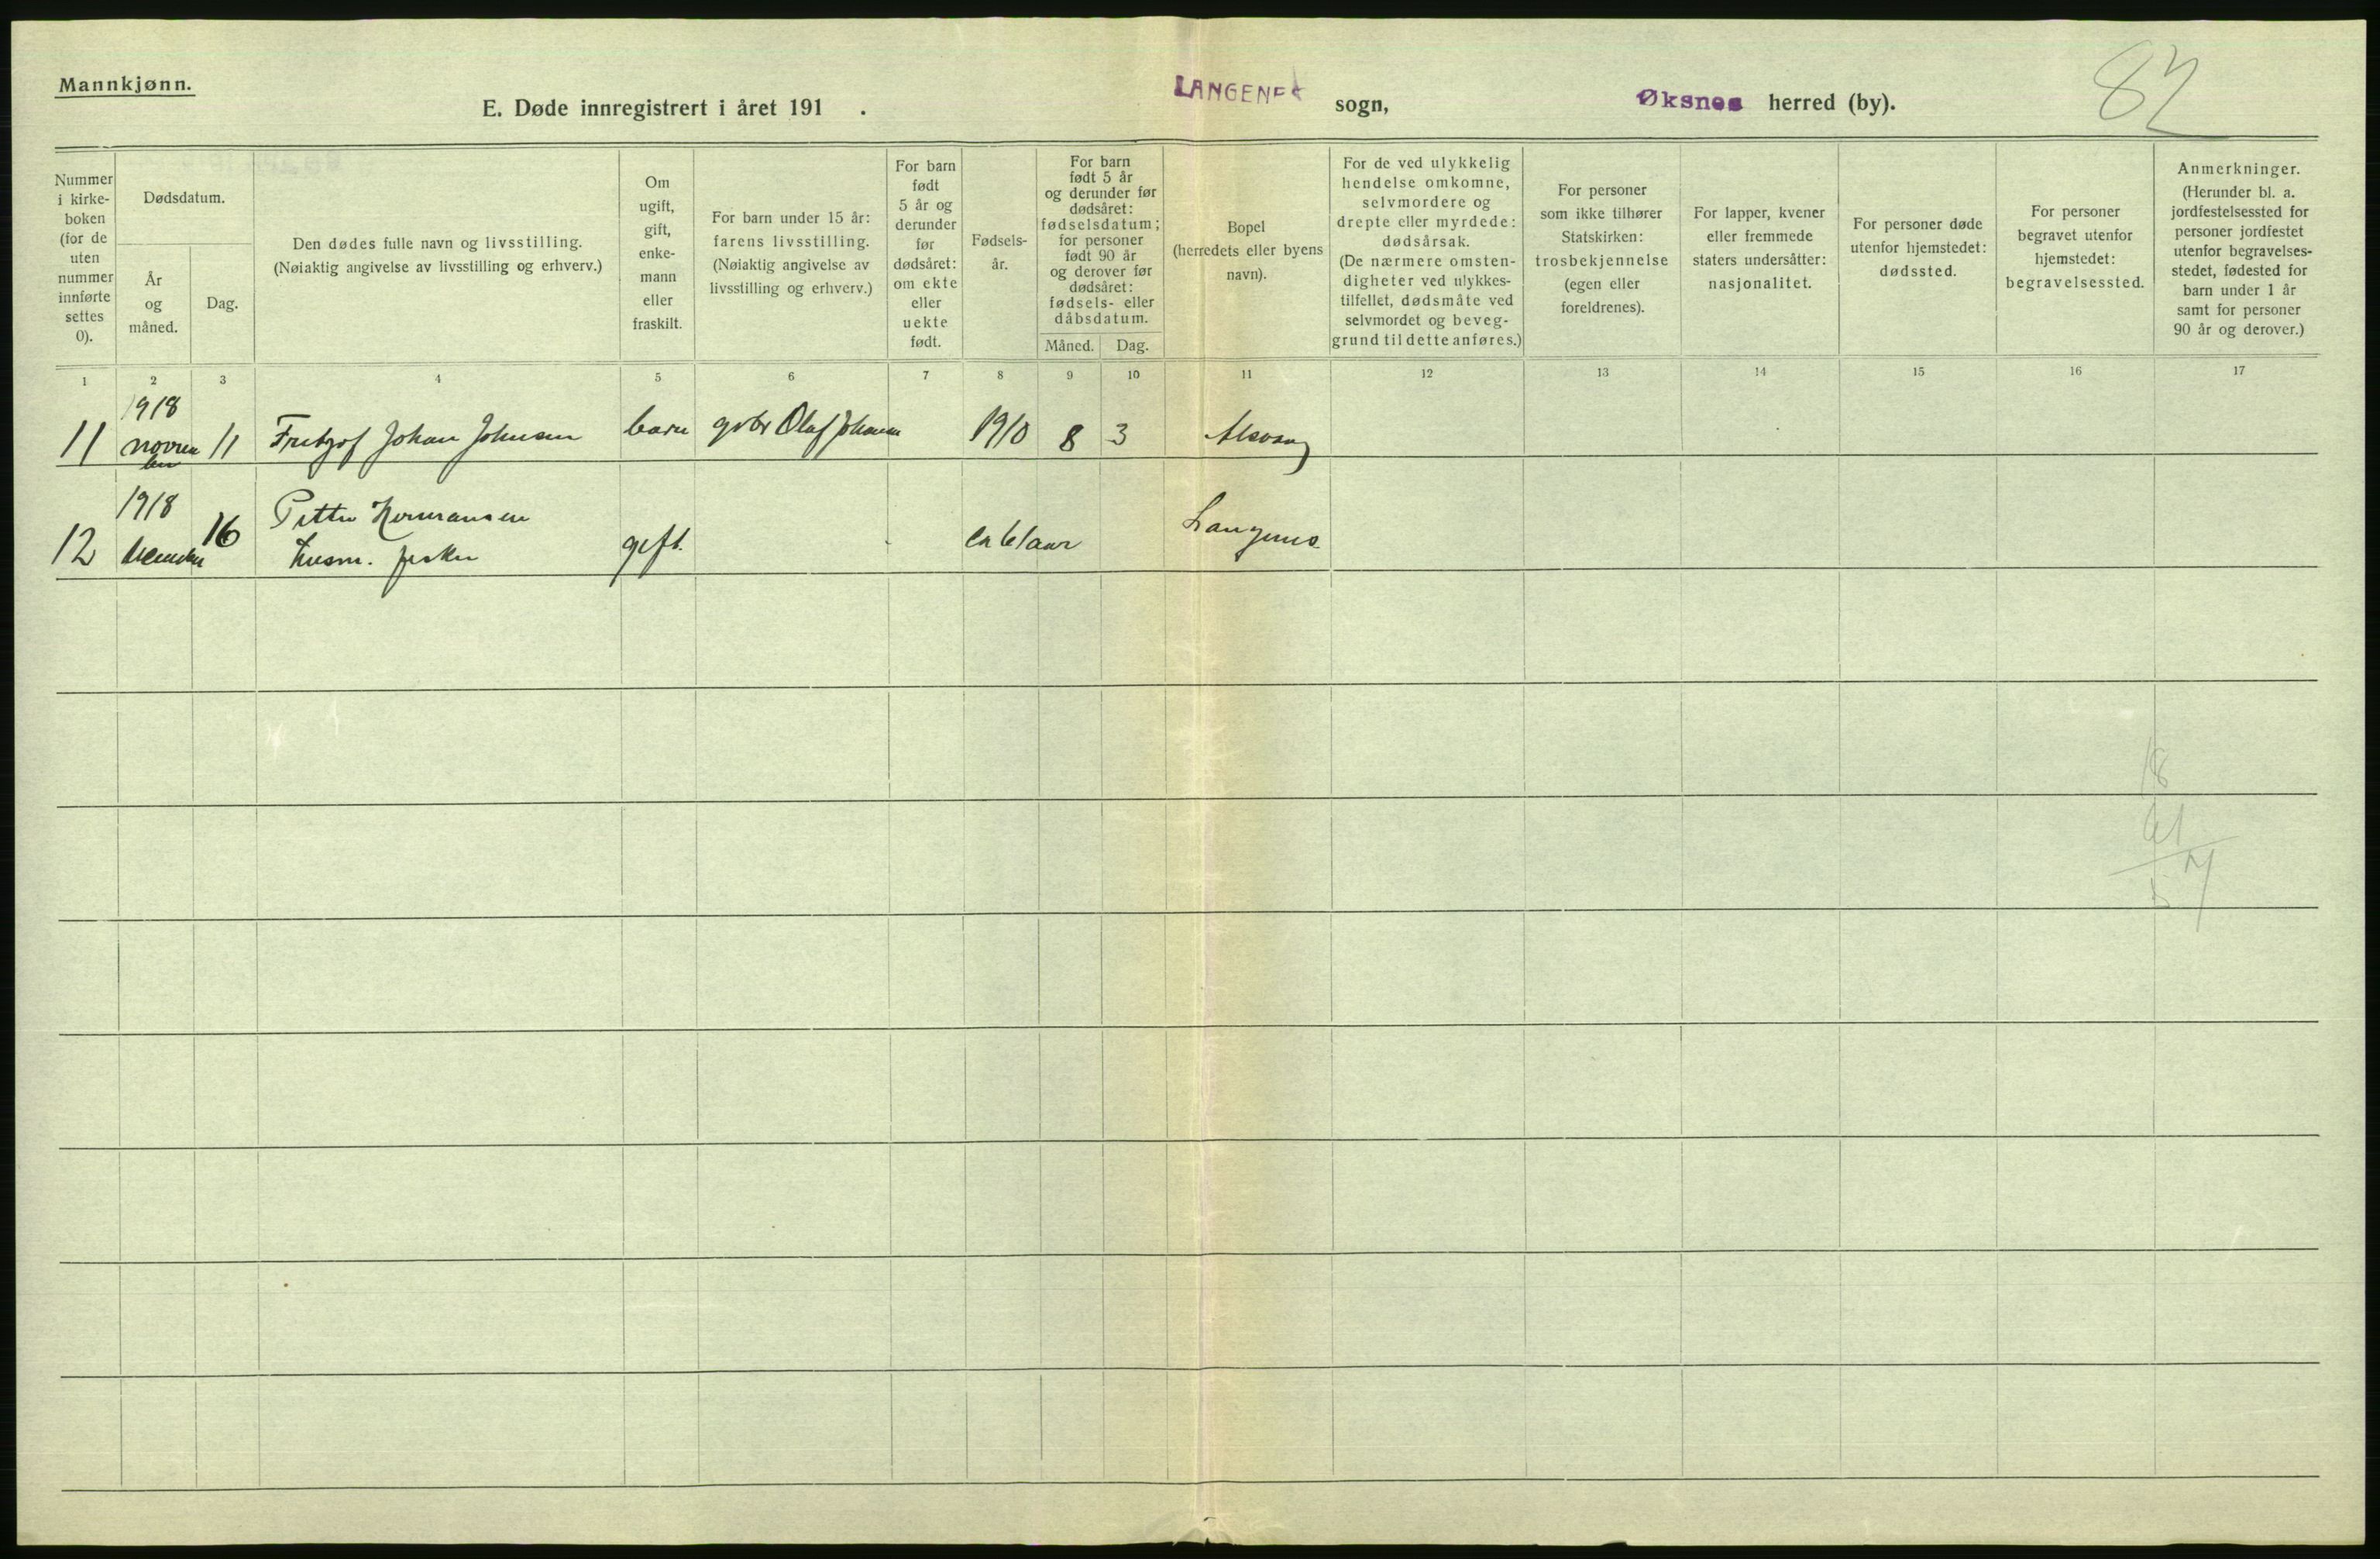 Mannkjønn.
E. Døde innregistrert i året 191 .
LANGENES sogn,
Øksnes herred (by).
82
Nummer
i kirke-
boken
(for de
uten
nummer
innførte
settes
0).
Dødsdatum.
År
og
måned.
Dag.
Den dødes fulle navn og livsstilling.
(Nøiaktig angivelse av livsstilling og erhverv.)
Om
ugift,
gift,
enke-
mann
eller
fraskilt.
For barn under 15 år:
farens livsstilling.
(Nøiaktig angivelse av
livsstilling og erhverv.)
For barn
født
5 år og
derunder
før
dødsåret:
om ekte
eller
uekte
født.
Fødsels-
år.
For barn
født 5 år
og derunder før
dødsåret:
fødselsdatum;
for personer
født 90 år
og derover før
dødsåret:
fødsels- eller
dåbsdatum.
Måned.
Dag.
Bopel
(herredets eller byens
navn).
For de ved ulykkelig
hendelse omkomne,
selvmordere og
drepte eller myrdede:
dødsårsak.
(De nærmere omsten-
digheter ved ulykkes-
tilfellet, dødsmåte ved
selvmordet og beveg-
grund til dette anføres.)
For personer
som ikke tilhører
Statskirken:
trosbekjennelse
(egen eller
foreldrenes).
For lapper, kvener
eller fremmede
staters undersåtter:
nasjonalitet.
For personer døde
utenfor hjemstedet:
dødssted.
For personer
begravet utenfor
hjemstedet:
begravelsessted.
Anmerkninger.
(Herunder bl. a.
jordfestelsessted for
personer jordfestet
utenfor begravelses-
stedet, fødested for
barn under 1 år
samt for personer
90 år og derover.)
1 2 3 4 5 6 7 8 9 10 11 12 13 14 15 16 17
1918
11 novem 11 Fritjof Johan Johnsen barn Olaf Johnsen 1910 8 3
ber
1918
Petter Hermansen
12 16 husm. fisker gift. ca 61 aar Langenes
18
61